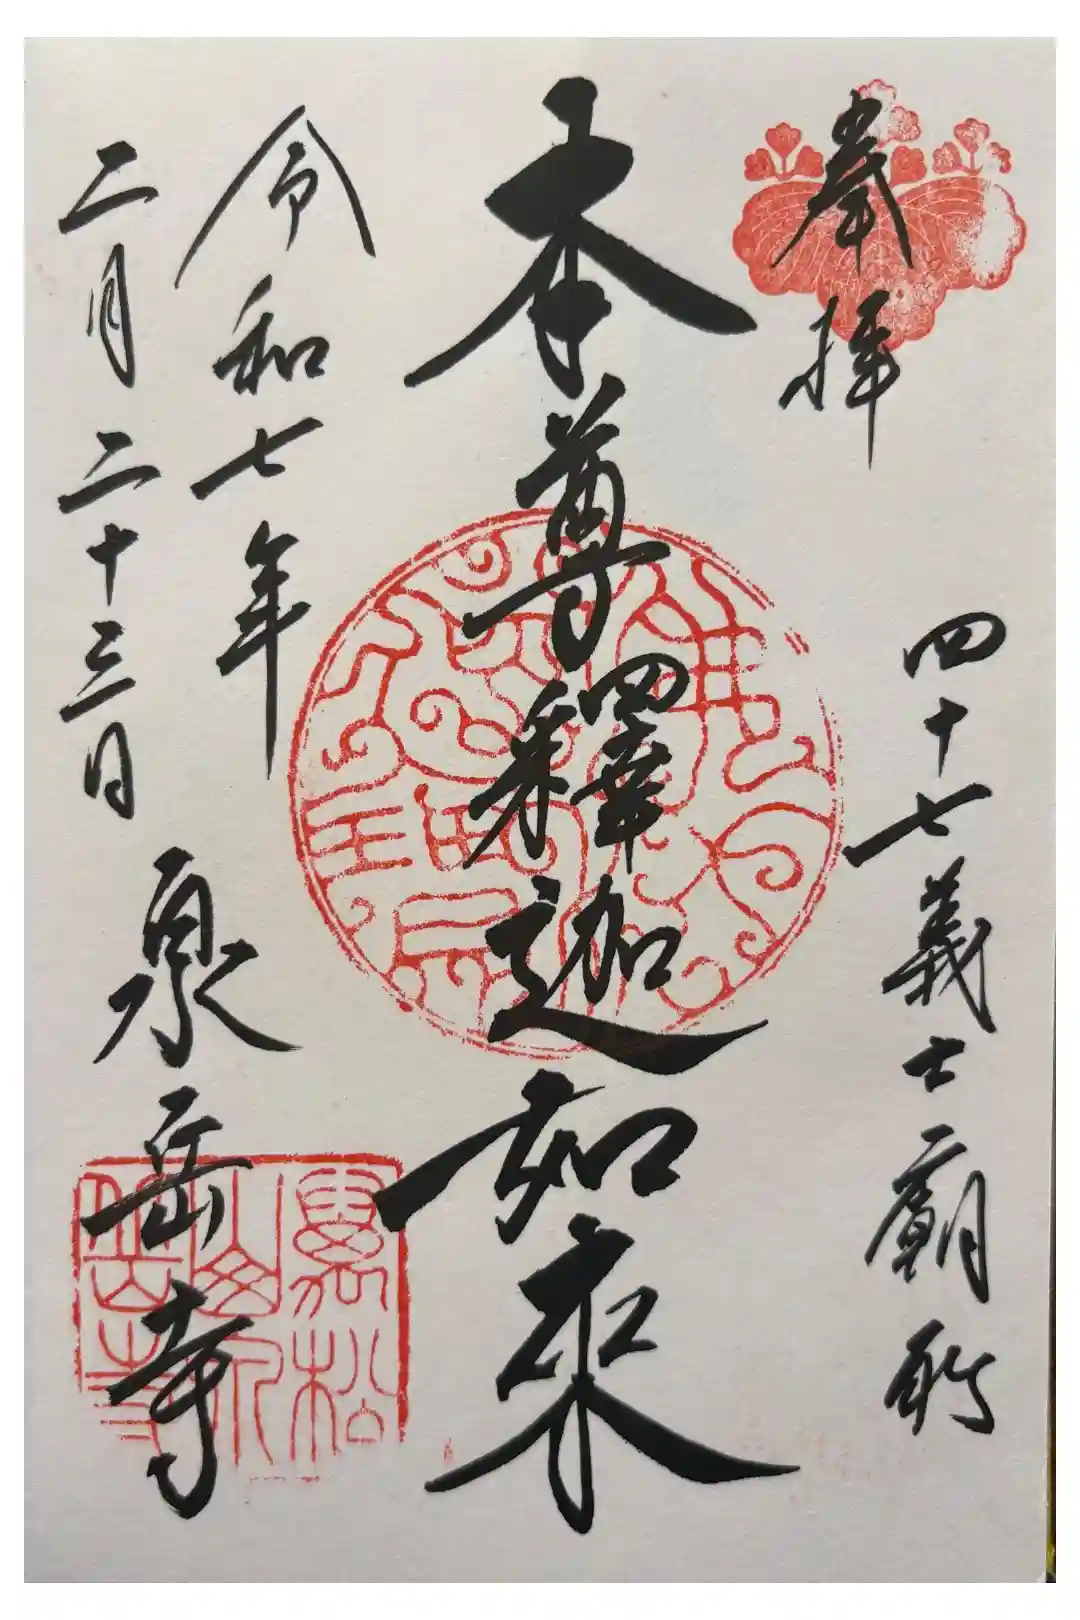 奉拝
四十七義士廟所
本尊釋迦如来
令和七年
二月二十三日
泉岳寺
萬松山泉岳寺